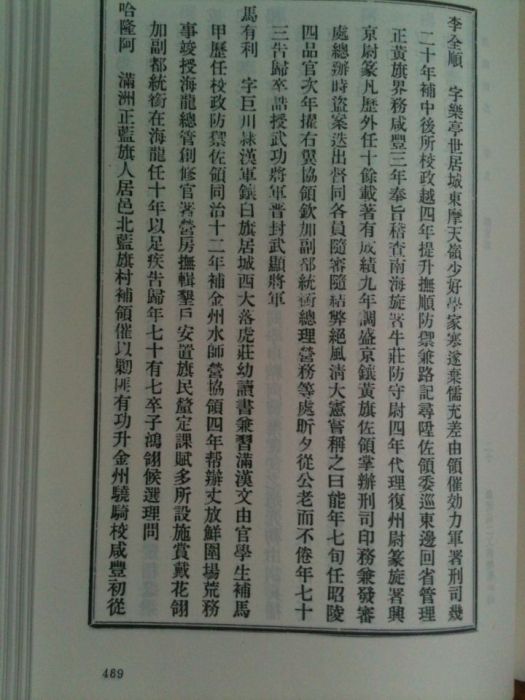 李全順　字樂亭世居城東摩天嶺少好學家寒遂棄儒充差由領催効力軍署刑司幾
二十年補中後所校政越四年提升撫順防禦兼路記尋陞佐領委巡東邊回省管理
正黃旗界務咸豐三年奉旨稽查南海旋署牛莊防守尉四年代理復州尉篆旋署興
京尉篆凡歷外任十餘載著有成績九年調盛京鑲黃旗佐領掌辦刑司印務兼發審
處總辦時盜案迭出督同各員隨審隨結弊絕風清大憲嘗稱之曰能年七旬任昭陵
四品官次年擢右翼協領欽加副都統銜總理營務等處昕夕從公老而不倦年七十
三告歸卒誥授武功將軍晉封武顯將軍
馬有利　字巨川隸漢軍鑲白旗居城西大落虎莊幼讀書兼習滿漢文由官學生補馬
甲歷任校政防禦佐領同治十二年補金州水師營協領四年帮辦丈放鮮圍場荒務
事竣授海龍總管創修官署營房撫輯墾戶安置旗民釐定課賦多所設施賞戴花翎
加副都統銜在海龍任十年以足疾告歸年七十有七卒子鴻翎候選理問
哈隆阿　滿洲正藍旗人居邑北藍旗村補領催以勦匪有功升金州驍騎校咸豐初從
469